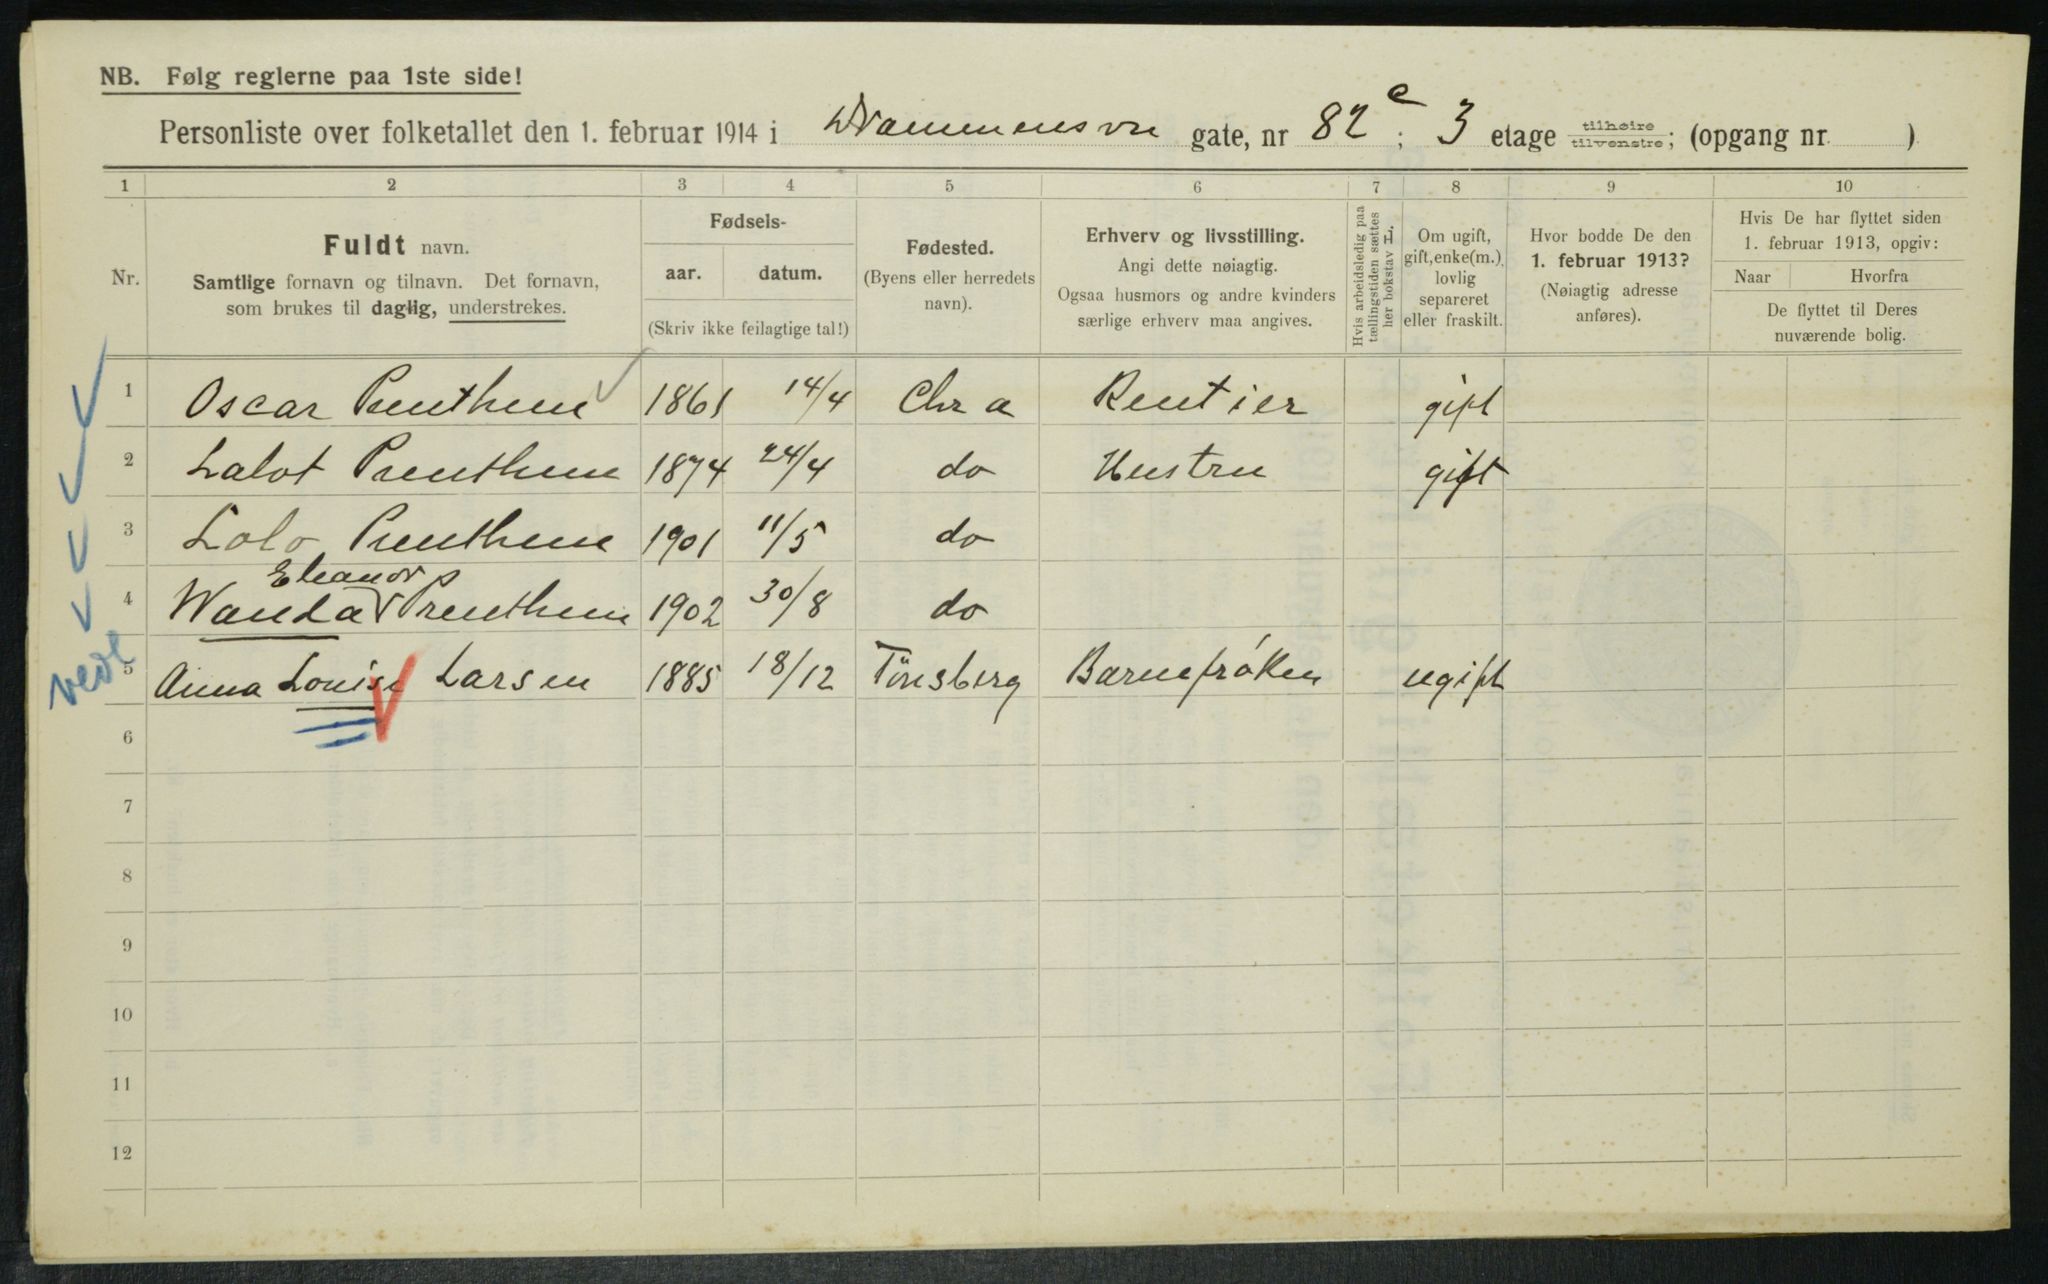 NB. Følg reglerne paa 1ste side!
Personliste over folketallet den 1. februar 1914 i Drammensvn gate, nr 82 c ; 3 etage tilhøire tilvenstre; (opgang nr. )
1 2 3 4 5 6 7 8 9 10
Nr.
Fuldt navn.
Samtlige fornavn og tilnavn. Det fornavn,
som brukes til daglig, understrekes.
Fødsels-
aar. datum.
(Skriv ikke feilagtige tal!)
Fødested.
(Byens eller herredets
navn).
Erhverv og livsstilling.
Angi dette nøiagtig.
Ogsaa husmors og andre kvinders
særlige erhverv maa angives.
Hvis arbeidsledig paa
tællingstiden sættes
her bokstav L.
Om ugift,
gift, enke(m.),
lovlig
separeret
eller fraskilt.
Hvor bodde De den
1. februar 1913?
(Nøiagtig adresse
anføres).
Hvis De har flyttet siden
1. februar 1913, opgiv:
Naar Hvorfra
De flyttet til Deres
nuværende bolig.
1 Oscar 1861 14/4 Chr a Rentier gift
2 Lalot 1874 24/4 do Hustru gift
3 Lolo 1901 11/5 do
Eleanor
4 Wanda 1902 30/8 do
5 Anna Louise Larsen 1885 18/12 Tönsberg Barnefrøken ugift
6
7
8
9
10
11
12